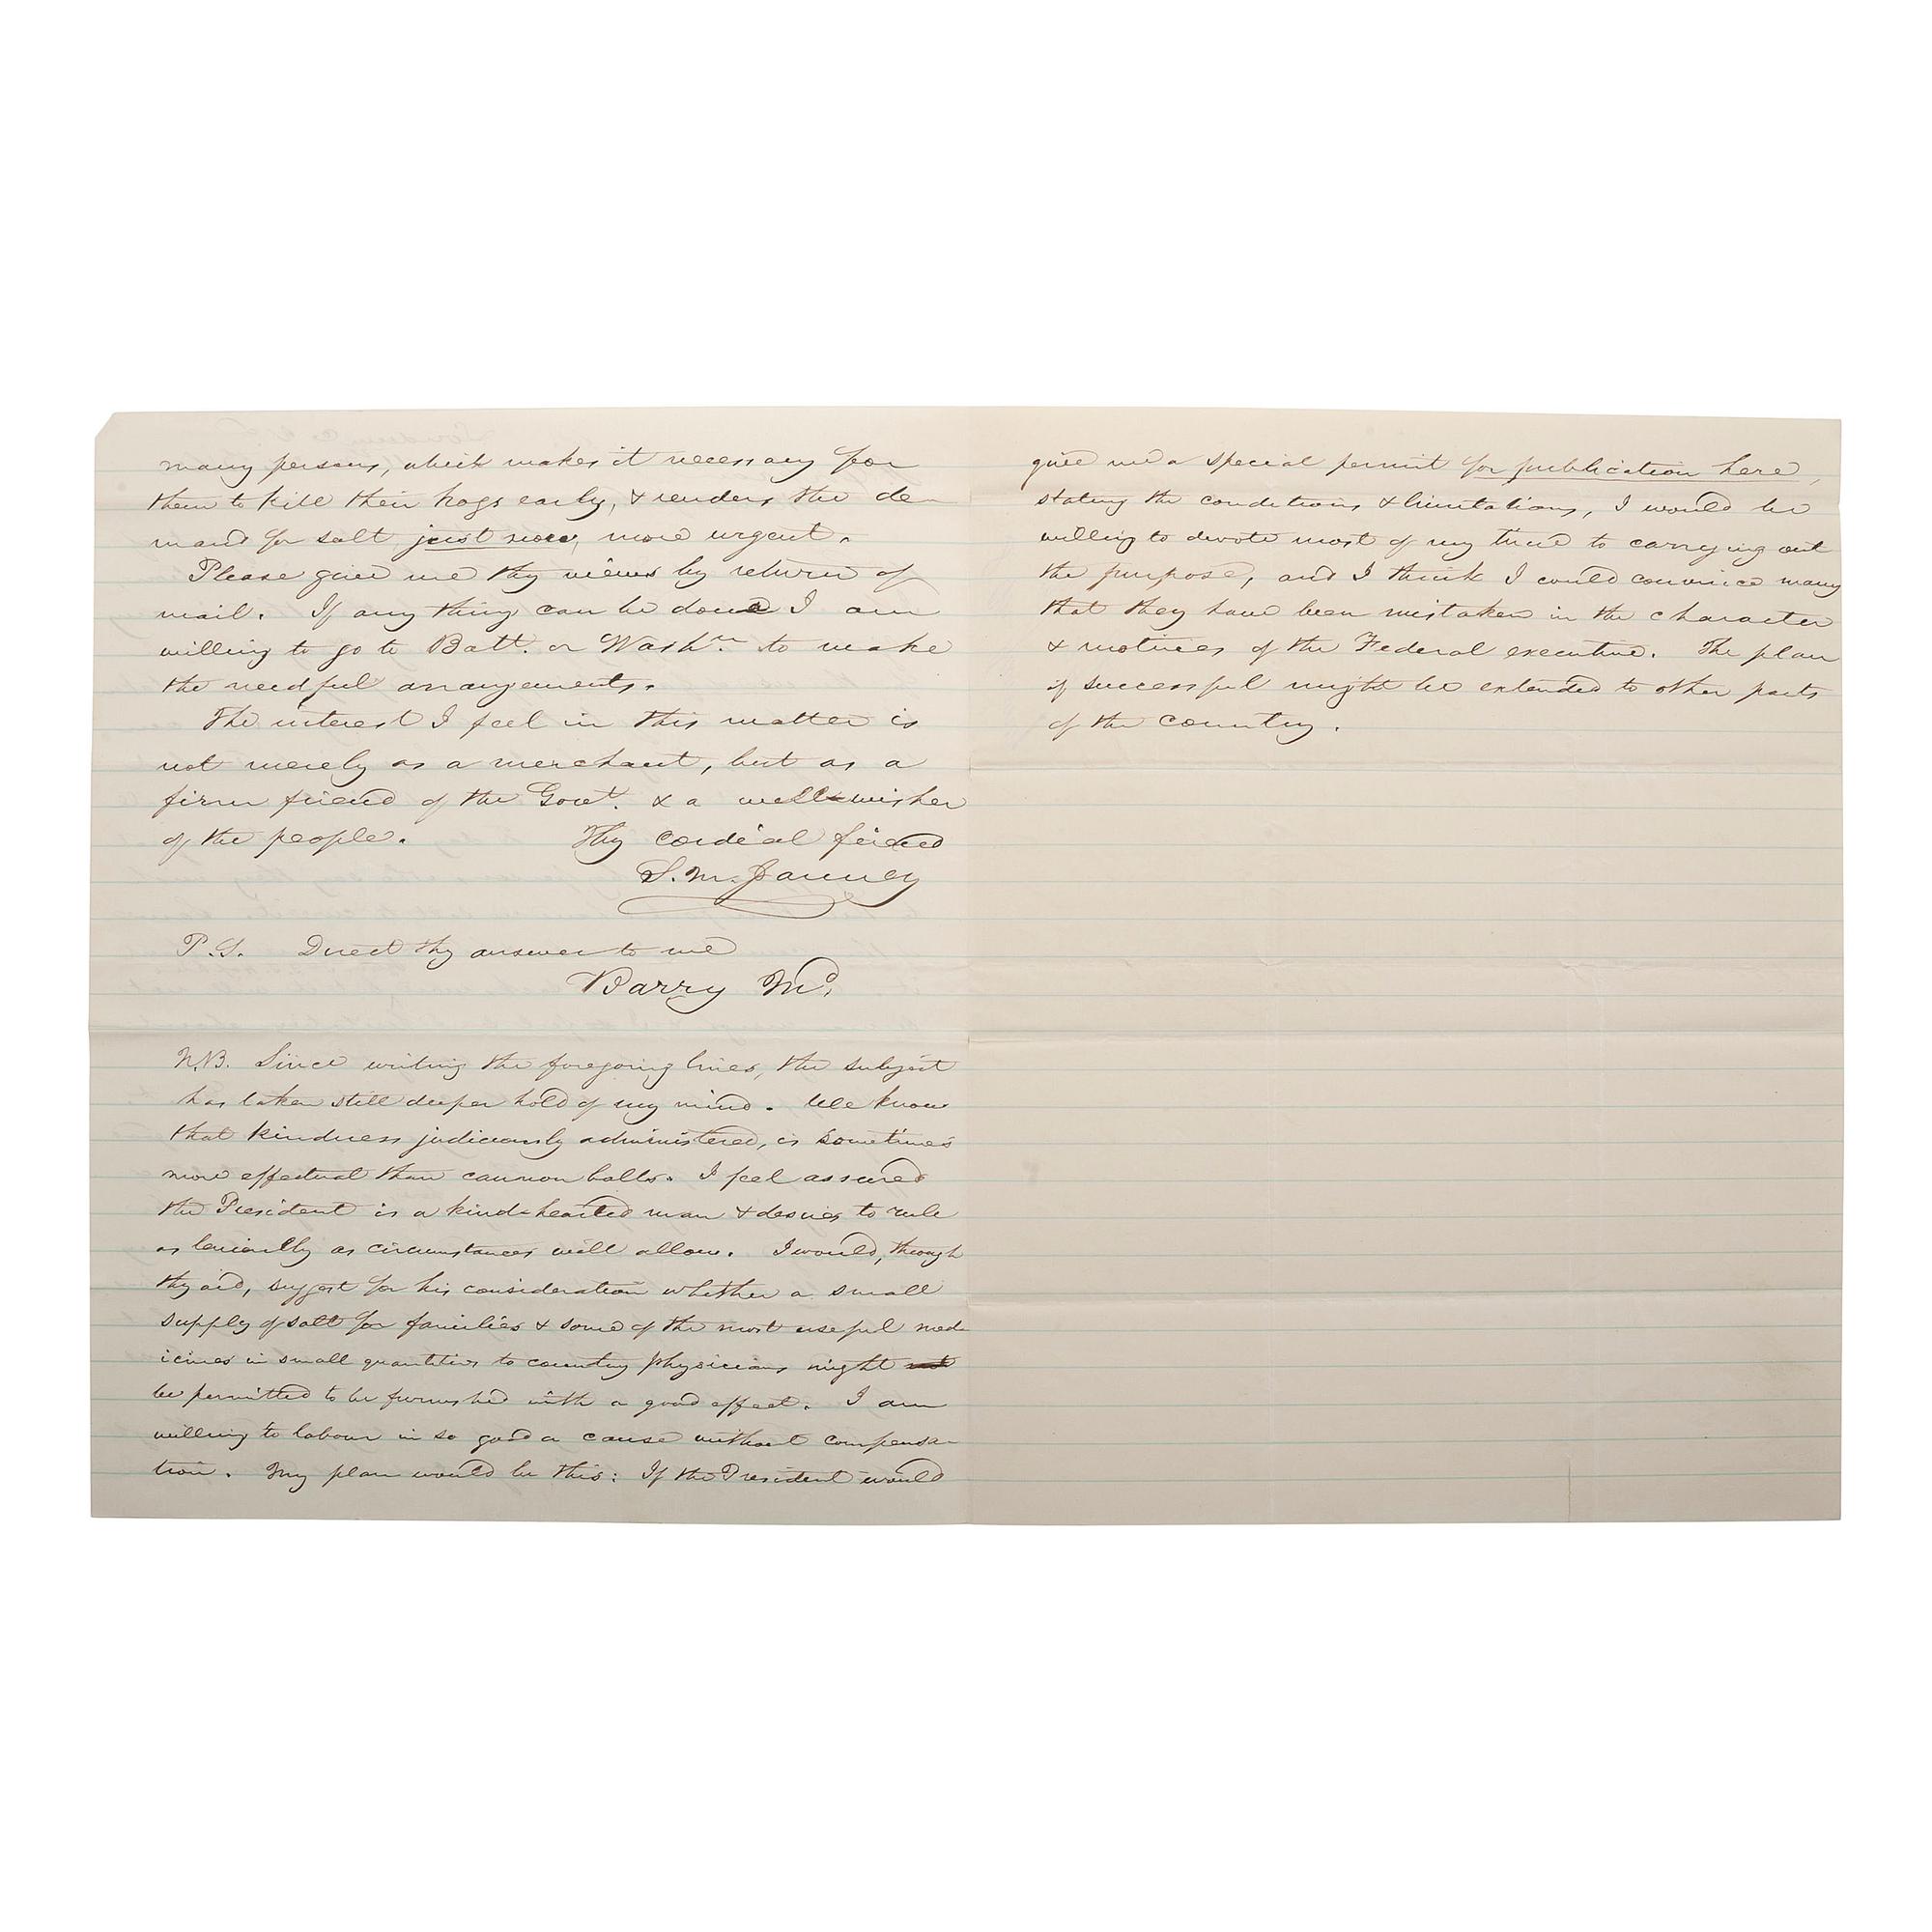 many persons, which makes it necessary for
them to kill their hogs early, & renders the de-
mand for salt just now, more urgent.
Please give me thy views by return of
mail. If any thing can be done I am
willing to go to Balt. or Washn. to make
the needful arrangements.
The interest I feel in this matter is
not merely as a merchant, but as a
firm friend of the Govt. & a well-wisher
of the people. Thy cordial friend
S. M. Janney
P.S. Direct thy answer to me
Barry Md.
N.B. Since writing the foregoing lines, the subject
has taken still deeper hold of my mind. We know
that kindness judiciously administered, is sometimes
more effectual than cannon balls. I feel assured
the President is a kind-hearted man & desires to rule
as leniently as circumstances will allow. I would, through
thy aid, suggest for his consideration whether a small
supply of salt for families & some of the most useful med-
icines in small quantities to country physicians might not
be permitted to be furnished with a good effect. I am
willing to labour in so good a cause without compensa-
tion. My plan would be this: If the President would
give me a special permit for publication here,
stating the conditions & limitations, I would be
willing to devote most of my time to carrying out
the purpose, and I think I could convince many
that they have been mistaken in the character
& motives of the Federal executive. The plan
if successful might be extended to other parts
of the country.